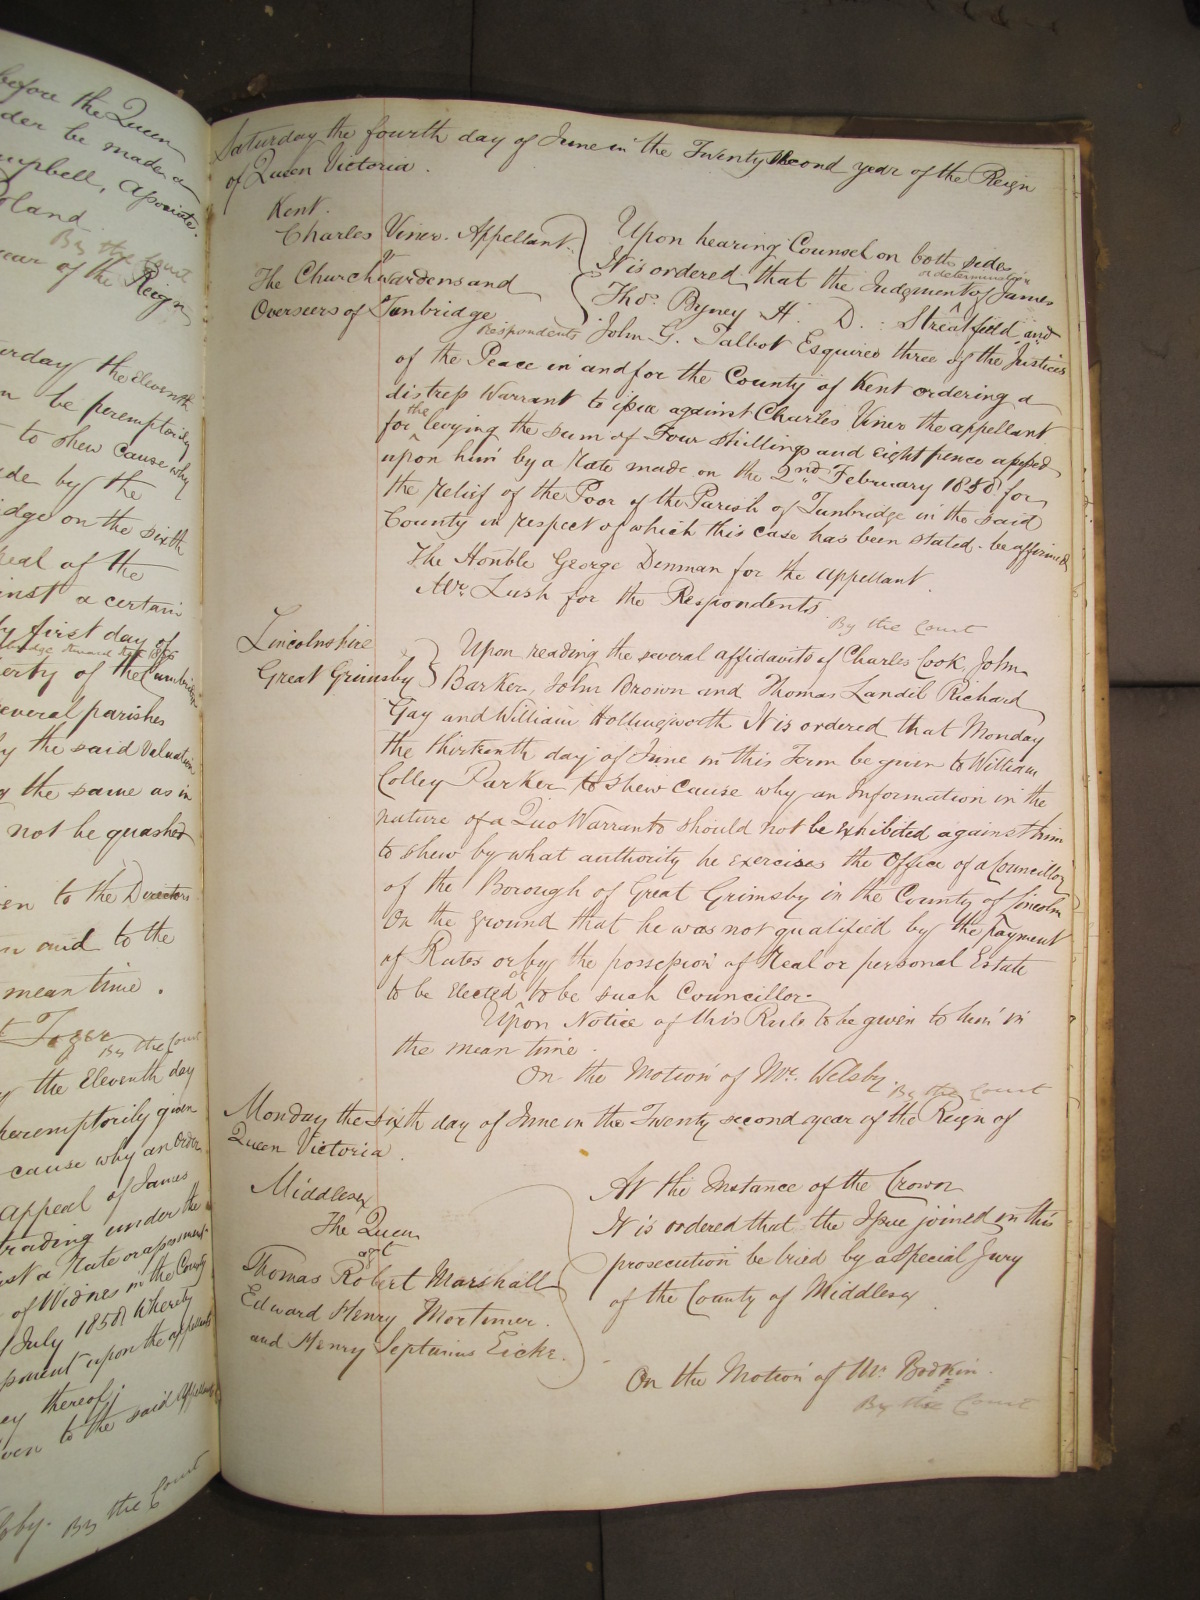 before the Queen
der be made a
mpbell, Associate.
oland
By the Court
year of the Reign
urday the Eleventh
n be peremptorily
to shew cause why
de by the
idge on the sixth
peal of the
inst a certain
ly first day of
erty of the Cambridge
several parishes
by the said Valuation
g the same as in
not be quashed
en to the Directors
and to the
mean time.
Tozer
By the Court
y the Eleventh day
peremptorily given
cause why an Order
appeal of James
rading under the
st a Rate or assessment
of Widnes in the County
July 1858 whereby
ssment upon the appellants
ey thereof
ven to the said Appellants
lsby. By the Court
Saturday the fourth day of June in the Twenty second year of the Reign
of Queen Victoria.
Kent.
Charles Viner. Appellant.
The Churchwardens and
Overseers of Tunbridge
Respondents
Upon hearing Counsel on both sides
It is ordered that the Judgment or determination of James
Thos. Byney A. D. Streatfield and
John G. Talbot Esquires three of the Justices
of the Peace in and for the County of Kent ordering a
distress Warrant to issue against Charles Viner the appellant
for the levying the sum of Four Shillings and Eight pence assessed
upon him by a Rate made on the 2nd February 1858 for
the relief of the Poor of the Parish of Tunbridge in the said
County in respect of which this case has been stated - be affirmed
The Honble George Denman for the appellant
Mr. Lush for the Respondents
By the Court
Lincolnshire
Great Grimsby
Upon reading the several affidavits of Charles Cook, John
Barker, John Brown and Thomas Landil Richard
Gay and William Hollingsworth It is ordered that Monday
the thirteenth day of June in this Term be given to William
Colley Parker to shew cause why an Information in the
nature of a Quo Warranto should not be exhibited against him
to shew by what authority he exercises the Office of a Councillor
of the Borough of Great Grimsby in the County of Lincoln
On the ground that he was not qualified by the payment
of Rates or by the possession of Real or personal Estate
to be Elected or to be such Councillor
Upon Notice of this Rule to be given to him in
the mean time.
On the Motion of Mr. Welsby.
By the Court
Monday the sixth day of June in the Twenty second year of the Reign of
Queen Victoria.
Middlesex
The Queen
agst
Thomas Robert Marshall
Edward Henry Mortimer.
and Henry Septimus Eicke.
At the Instance of the Crown
It is ordered that the Issue joined in this
prosecution be tried by a Special Jury
of the County of Middlesex
On the Motion of Mr. Bodkin.
By the Court